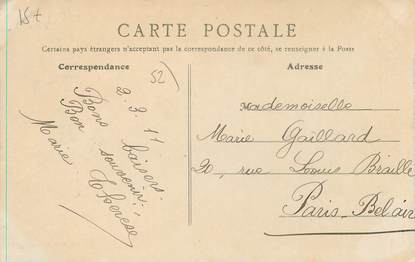 15+
CARTE POSTALE
Certains pays étrangers n'acceptant pas la correspondance de ce côté, se renseigner à la Poste
Correspondance
Adresse
52
2.3.11
Bons baisers
Bon souvenir
Therese
Marie
Mademoiselle
Marie Gaillard
20, rue Louis Braille
Paris-Belair